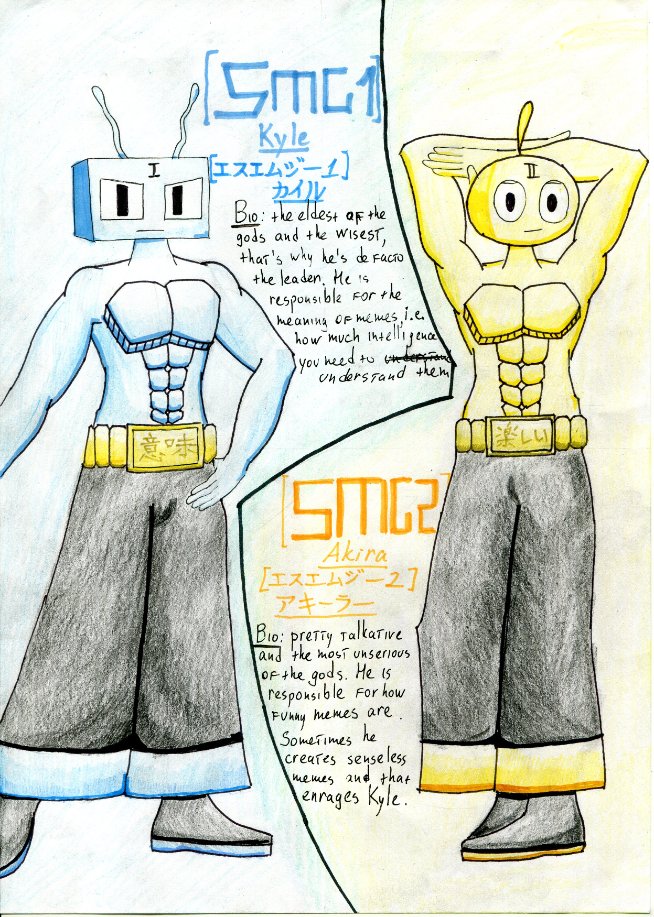 [SMG1]
Kyle
[エスエムジー1]
カイル
Bio: the eldest of the
gods and the wisest,
that's why he's de facto
the leader. He is
responsible for the
meaning of memes, i.e.
how much intelligence
you need to understand
understand them
I
意味
II
楽しい
[SMG2]
Akira
[エスエムジー2]
アキーラー
Bio: pretty talkative
and the most unserious
of the gods. He is
responsible for how
funny memes are.
Sometimes he
creates senseless
memes and that
enrages Kyle.